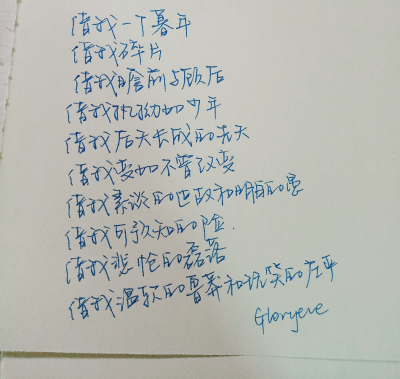 借我一个暮年
借我碎片
借我瞻前与顾后
借我执拗如少年
借我后天长成的先天
借我变如不曾改变
借我素淡的世故和明白的愚
借我可预知的险.
借我悲怆的磊落
借我温软的鲁莽和玩笑的庄严
Gloryeve